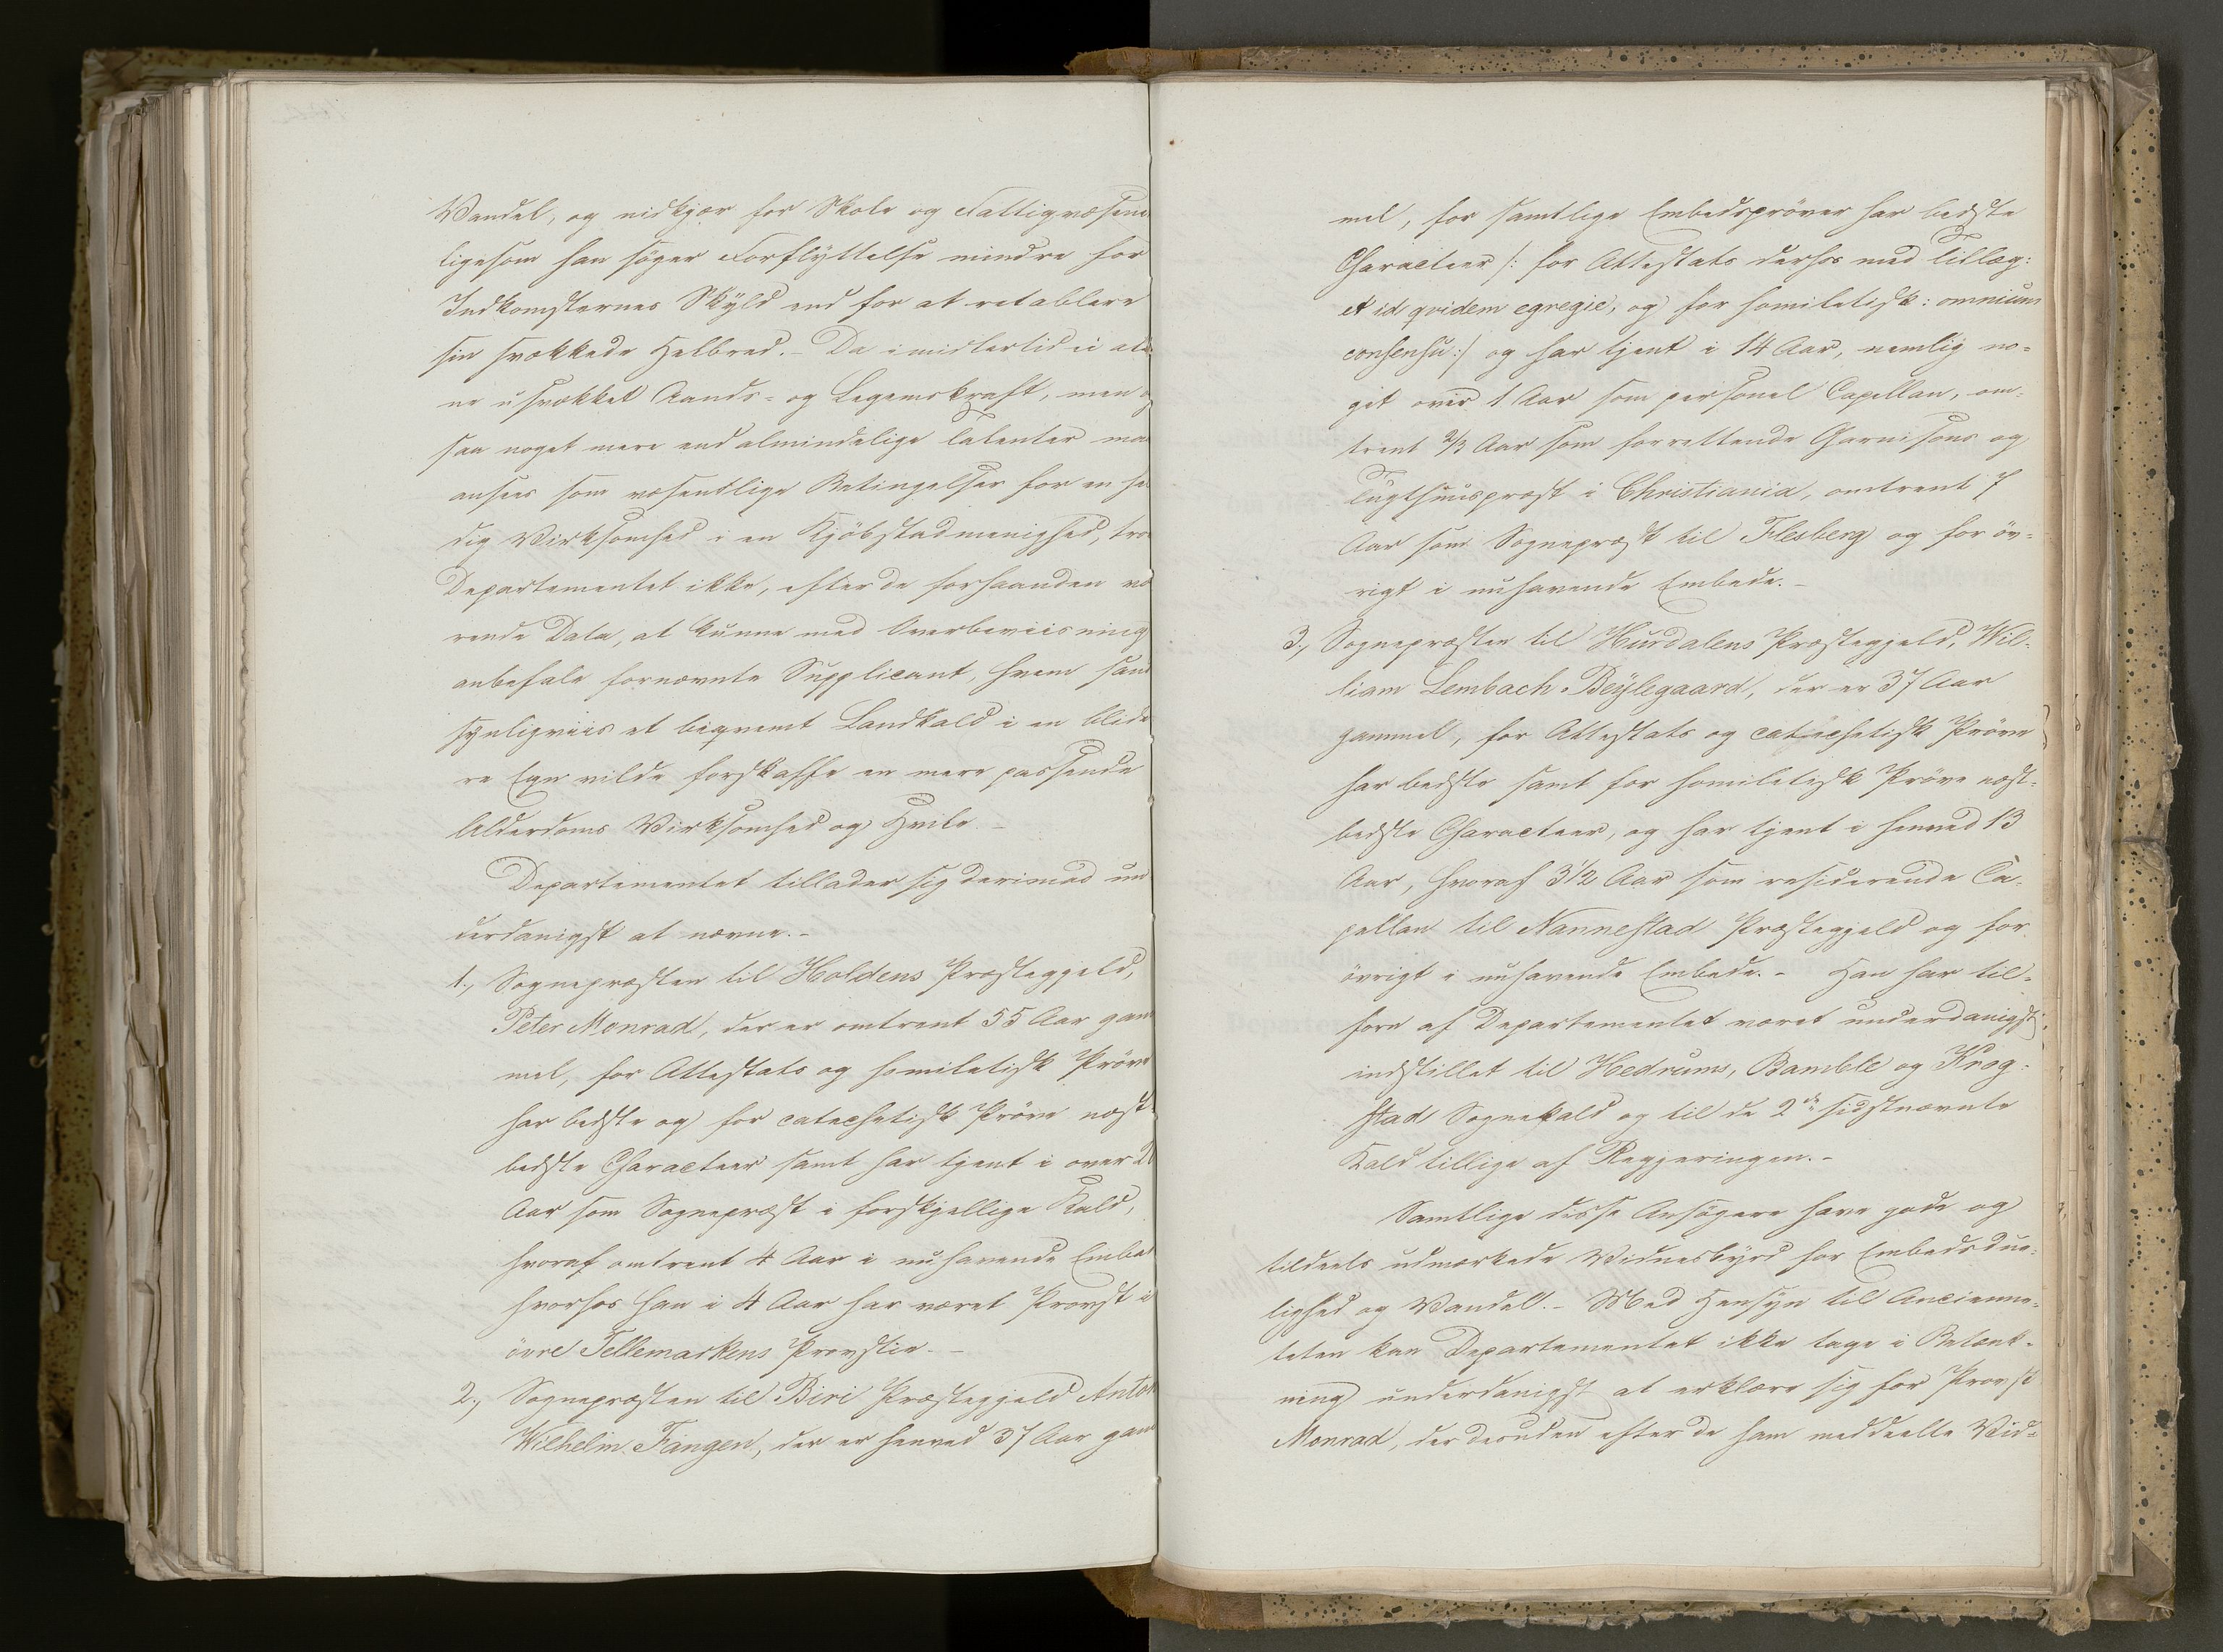 Vandel, og nidkjær for Skole og Fattigvæsene
ligesom han søger Forflyttelse mindre for
Indkomsternes Skyld end for at retablere
sin svækkede Helbred. - Da imidlertid ei ale
ne usvækket Aands- og Legemskraft, men og
saa noget mere end almindelige Talenter maa
ansees som væsentlige Betingelser for en he
dig Virksomhed i en Kjøbstadmenighed, tro
Departementet ikke, efter de forhaanden væ
rende Data, at kunne med Overbeviisning
anbefale fornævnte Supplicant, hvem sand
synligviis et beqvemt Landkald i en blide
re Egn vilde forskaffe en mere passende
Alderdoms Virksomhed og Hvile. -
Departementet tillader sig derimod un
derdanigst at nævne. -
1., Sognepræsten til Holdens Præstegjeld,
Peter Monrad, der er omtrent 55 Aar gam
mel, for Attestats og homiletisk Prøve
har bedste og for catechetisk Prøve næst
bedste Characteer samt har tjent i over 2
Aar som Sognepræst i forskjellige Kald,
hvoraf omtrent 4 Aar i nuhavende Embe
hvorhos han i 4 Aar har været Provst i
øvre Tellemarkens Provstie. -
2., Sognepræsten til Biri Præstegjeld Anton
Wilhelm Fangen, der er henved 37 Aar gam
mel, for samtlige Embedsprøver har bedste
Characteer /: for Attestats derhos med Tillæg:
et id qvidem egregie, og for homiletisk: omnium
consensu :/ og har tjent i 14 Aar, nemlig no-
get over 1 Aar som personel Capellan, om-
trent 2/3 Aar som forrettende Garnisons og
Tugthuuspræst i Christiania, omtrent 7
Aar som Sognepræst til Flesberg og for øv-
rigt i nuhavende Embede. -
3., Sognepræsten til Hurdalens Præstegjeld, Wil-
liam Lembach Beylegaard, der er 37 Aar
gammel, for Attestats og catechetisk Prøve
har bedste samt for homiletisk Prøve næst-
bedste Characteer, og har tjent i henved 13
Aar, hvoraf 3 1/2 Aar som residerende Ca-
pellan til Nannestad Præstegjeld og for
øvrigt i nuhavende Embede. - Han har til-
forn af Departementet været underdanigst
indstillet til Hedrums, Bamble og Krog-
stad Sognekald og til de 2de sidstnævnte
Kald tillige af Regjeringen. -
Samtlige disse Ansøgere have gode og
tildeels udmærkede Vidnesbyrd for Embedsdue-
lighed og Vandel. - Med Hensyn til Ancienne-
teten kan Departementet ikke tage i Betænk-
ning underdanigst at erklære sig for Provst
Monrad, der desuden efter de ham meddeelte Vid-